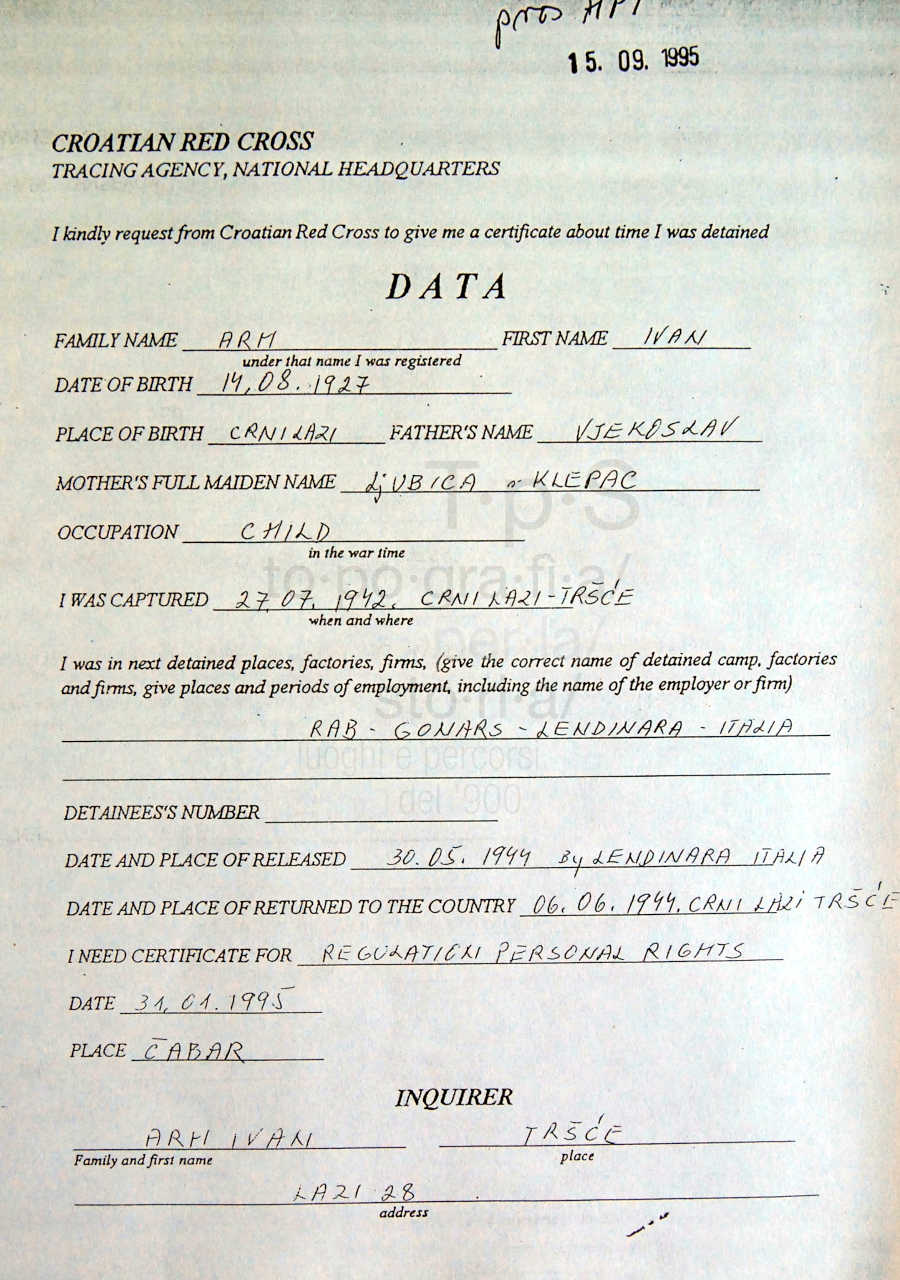 15. 09. 1995
CROATIAN RED CROSS
TRACING AGENCY, NATIONAL HEADQUARTERS
I kindly request from Croatian Red Cross to give me a certificate about time I was detained
DATA
FAMILY NAME ARH FIRST NAME IVAN
under that name I was registered
DATE OF BIRTH 14,08. 1927
PLACE OF BIRTH CRNI LAZI FATHER'S NAME VJEKOSLAV
MOTHER'S FULL MAIDEN NAME LJUBICA KLEPAC
OCCUPATION CHILD
in the war time
I WAS CAPTURED 27.07. 1942. CRNI LAZI-TRŠĆE
when and where
I was in next detained places, factories, firms, (give the correct name of detained camp, factories
and firms, give places and periods of employment, including the name of the employer or firm)
RAB - GONARS - LENDINARA - ITALIA
DETAINEES'S NUMBER
DATE AND PLACE OF RELEASED 30. 05. 1944 By LENDINARA ITALIA
DATE AND PLACE OF RETURNED TO THE COUNTRY 06. 06. 1944. CRNI LAZI TRŠĆE
I NEED CERTIFICATE FOR REGULATION PERSONAL RIGHTS
DATE 31, 01. 1995
PLACE ČABAR
INQUIRER
ARH IVAN TRŠĆE
Family and first name place
LAZI 28
address
T·p·S
to·po·gra·fi·a/
per·la/
sto·ri·a/
luoghi e percorsi
del '900